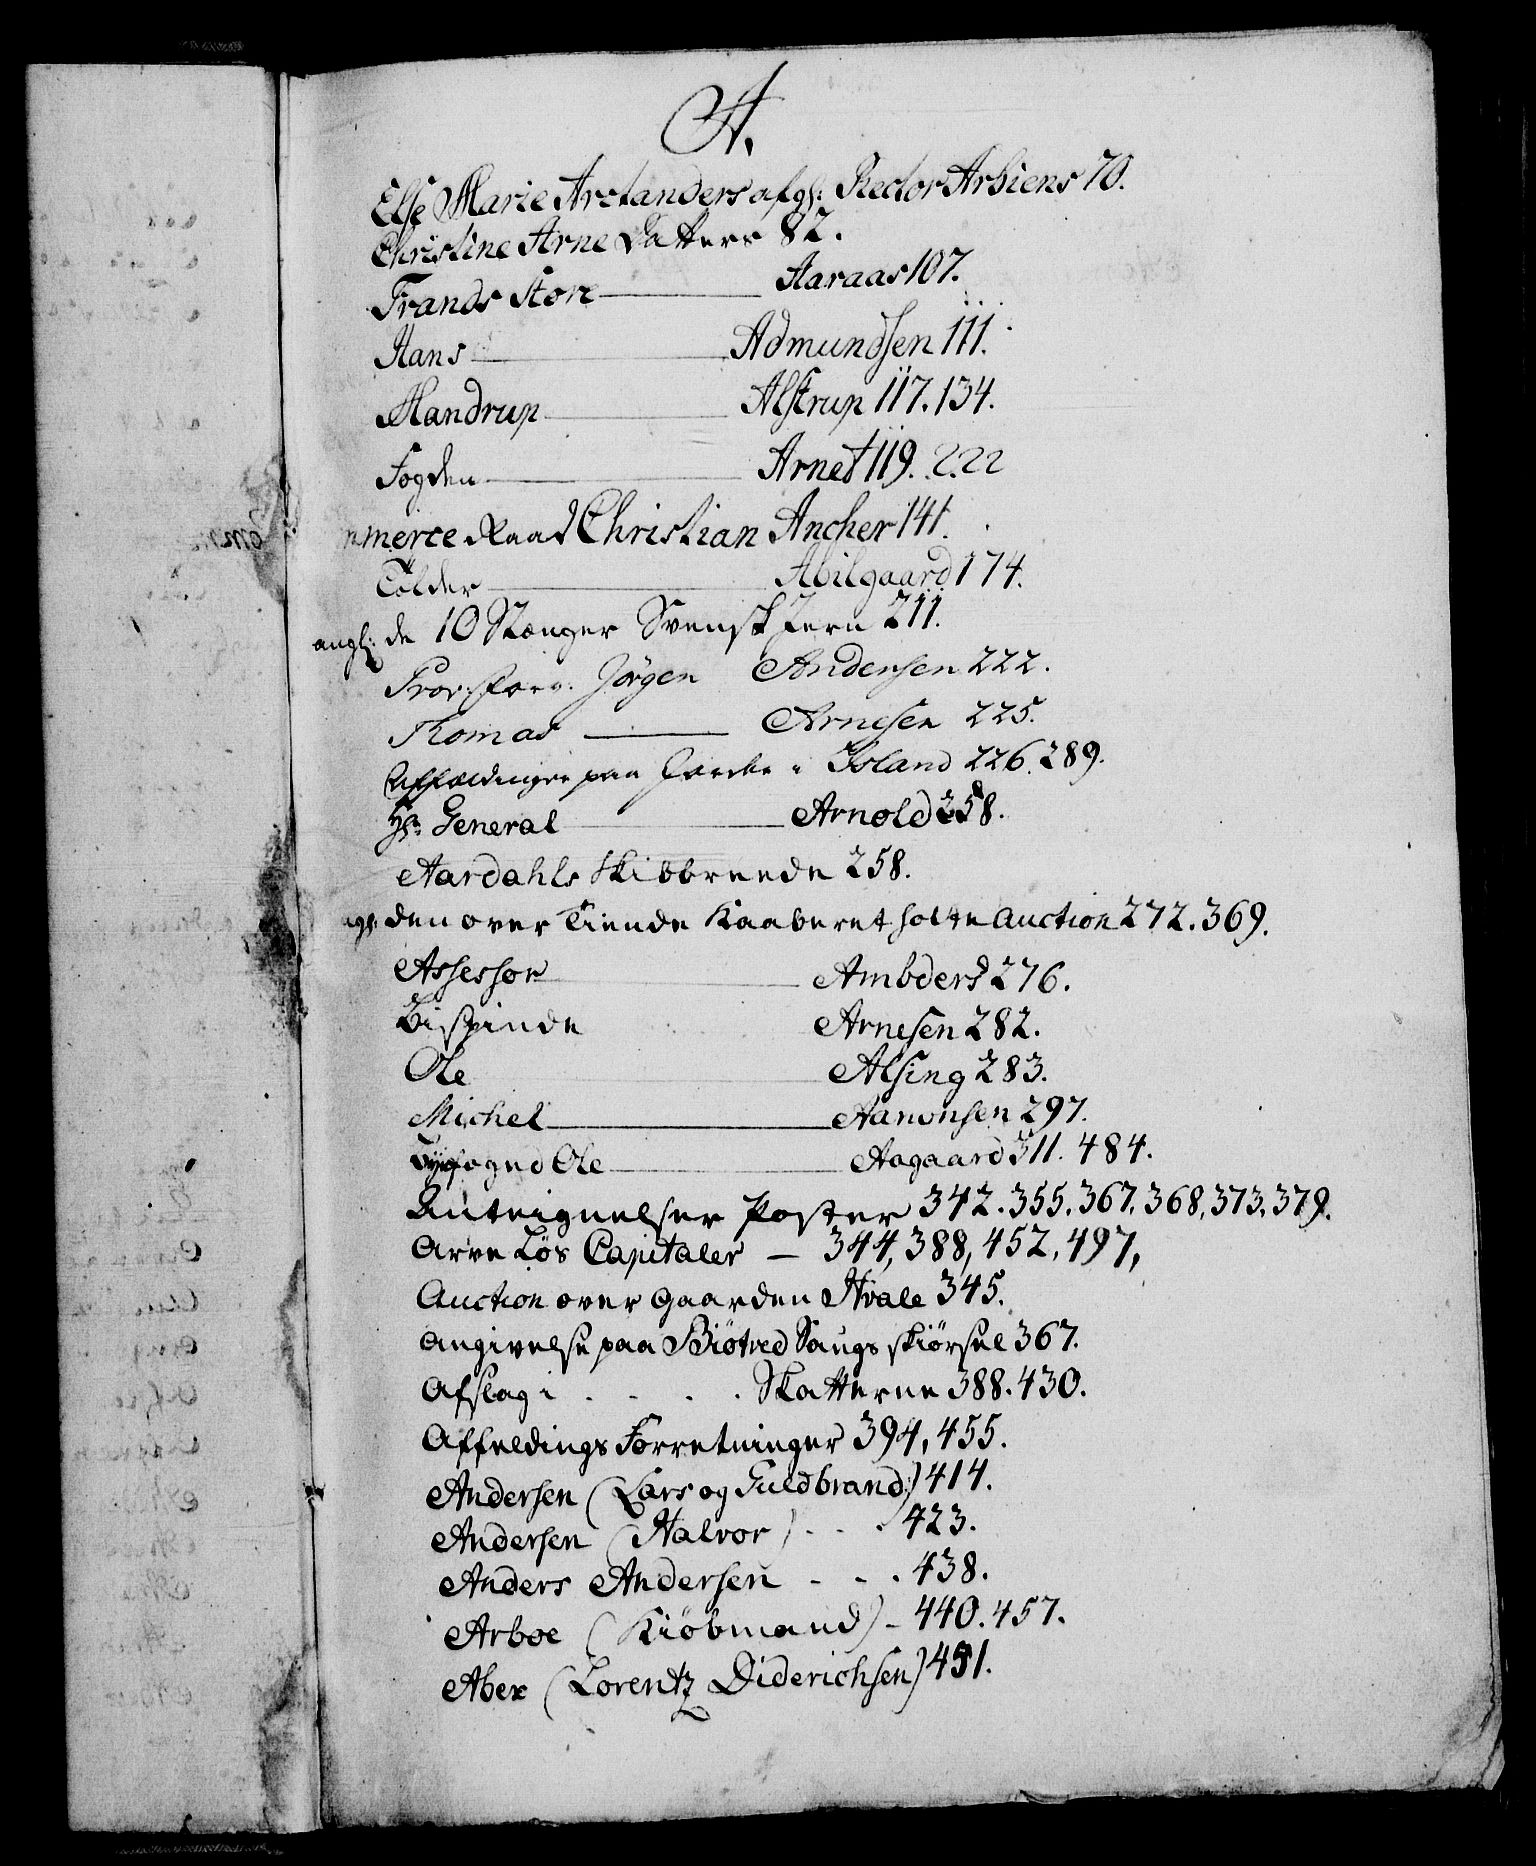 A.
Else Marie Arctanders afgl: Rector Arbiens 70.
Christine Arne Datters 82.
Frands Store Aaraas 107.
Hans Admundsen 111.
Mandrup Alstrup 117. 134.
Fogden Arnet 119. 222
merce Raad Christian Ancher 141.
Tolder Abilgaard 174.
angl: de 10 Stænger Svensk Jern 211.
Jörgen Andersen 222.
Thomas Arnesen 225.
paa i Island 226. 289.
Hr. General Arnold 258.
Aardahls Skibbreede 258.
den over Tiende Kaaberet holte Auction 272. 369.
Assessor Ambders 276.
Bispinde Arnesen 282.
Ole Alsing 283.
Michel Aanonsen 297.
Byefoged Ole Aagaard 311. 484.
Antegnelser Poster 342. 355. 367. 368, 373, 379.
Arve Løs Capitaler — 344, 388, 452, 497,
Auction over Gaarden Hvale 345.
Angivelse paa Saugs skiørsel 367.
Afslag i . . . . Skatterne 388. 430.
Affældings Forretninger 394, 455.
Andersen (Lars og Guldbrand:) 414.
Andersen (Halvor) . . . 423.
Anders Andersen - - . 438.
Arboe (Kiöbmand) - 440. 457.
Aber (Lorentz Diderichsen) 451.